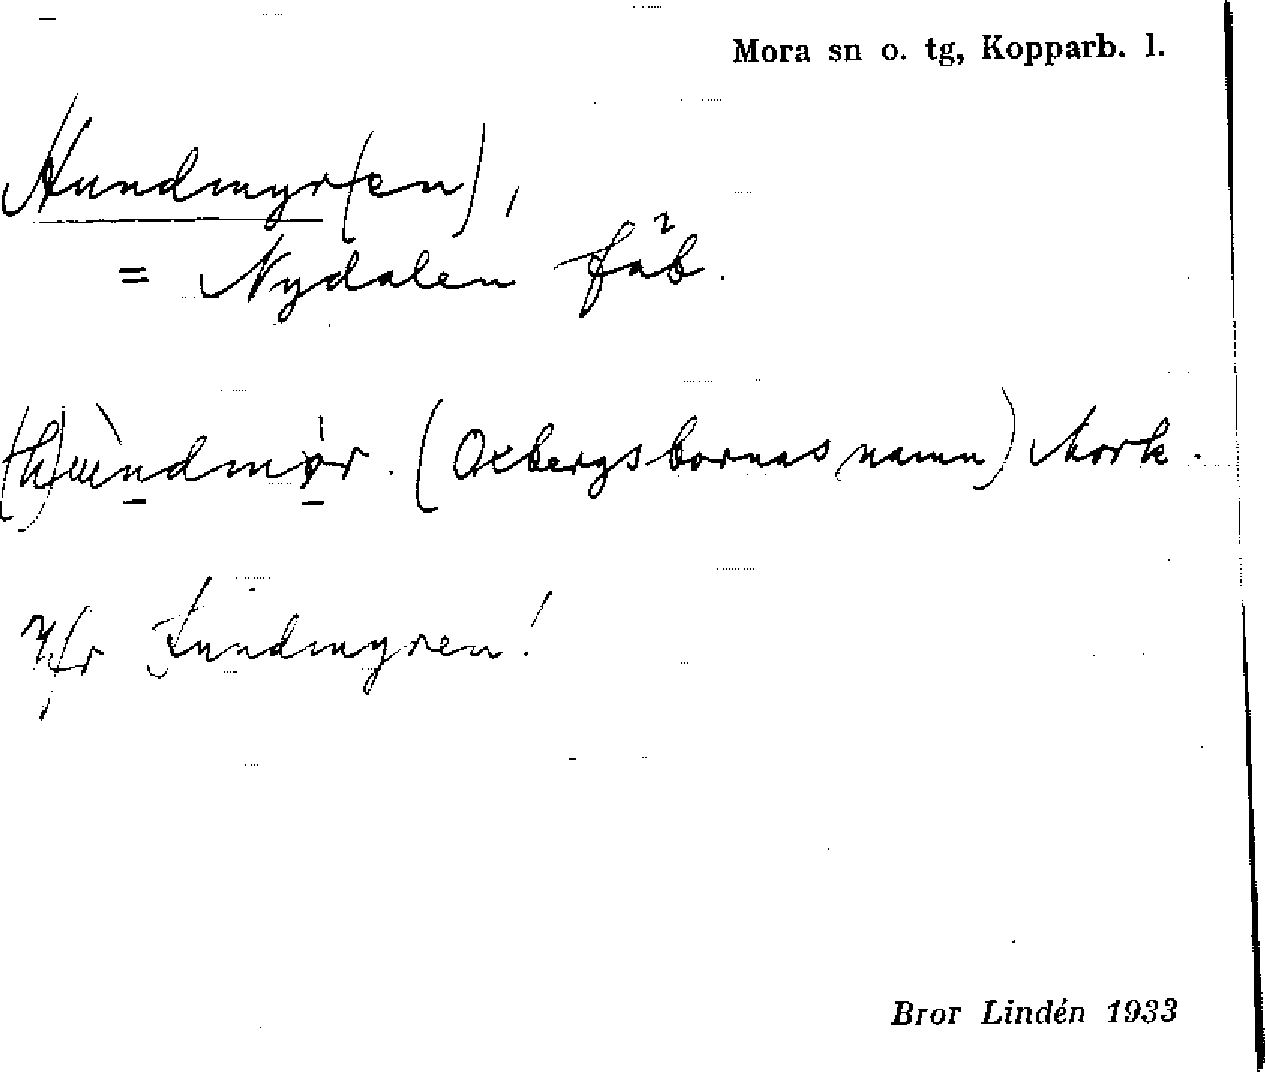 Mora sn o. tg, Kopparb. l.
Hundmyr(en),
= Nydalen fäb.
(h)ùndmør. (Oxbergsbornas namn) Mork.
Jfr Lundmyren!
Bror Lindén 1933